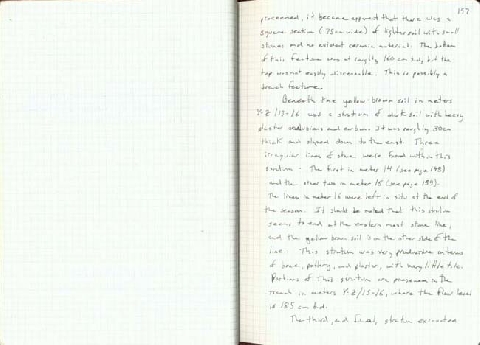 157
proceeded, it became apparent that there was a
square section (75cm wide) of lighter soil with small
stones and no evident ceramic material. The bottom
of this feature was at roughly 160 cm b.d., but the
top was not easily discernable. This is possibly a
bench feature.
Beneath the yellow-brown soil in meters
Y-Z/13-16 was a stratum of dark soil with heavy
plaster inclusions and carbon. It was roughly 30cm
thick and sloped down to the east. Three
irregular lines of stone were found within this
stratum - The first in meter 14 (see page 155)
and the other two in meter 15 (see page 155).
The lines in meter 16 were left in situ at the end of
the season. It should be noted that this stratum
seems to end at the eastern most stone line,
and the yellow brown soil is on the other side of the
line. This stratum was very productive in terms
of bone, pottery, and plaster, with very little tile.
Portions of this stratum are preserved in the
trench in meters Y-Z/15-16, where the floor level
is 185 cm b.d.
The third, and final, stratum excavated